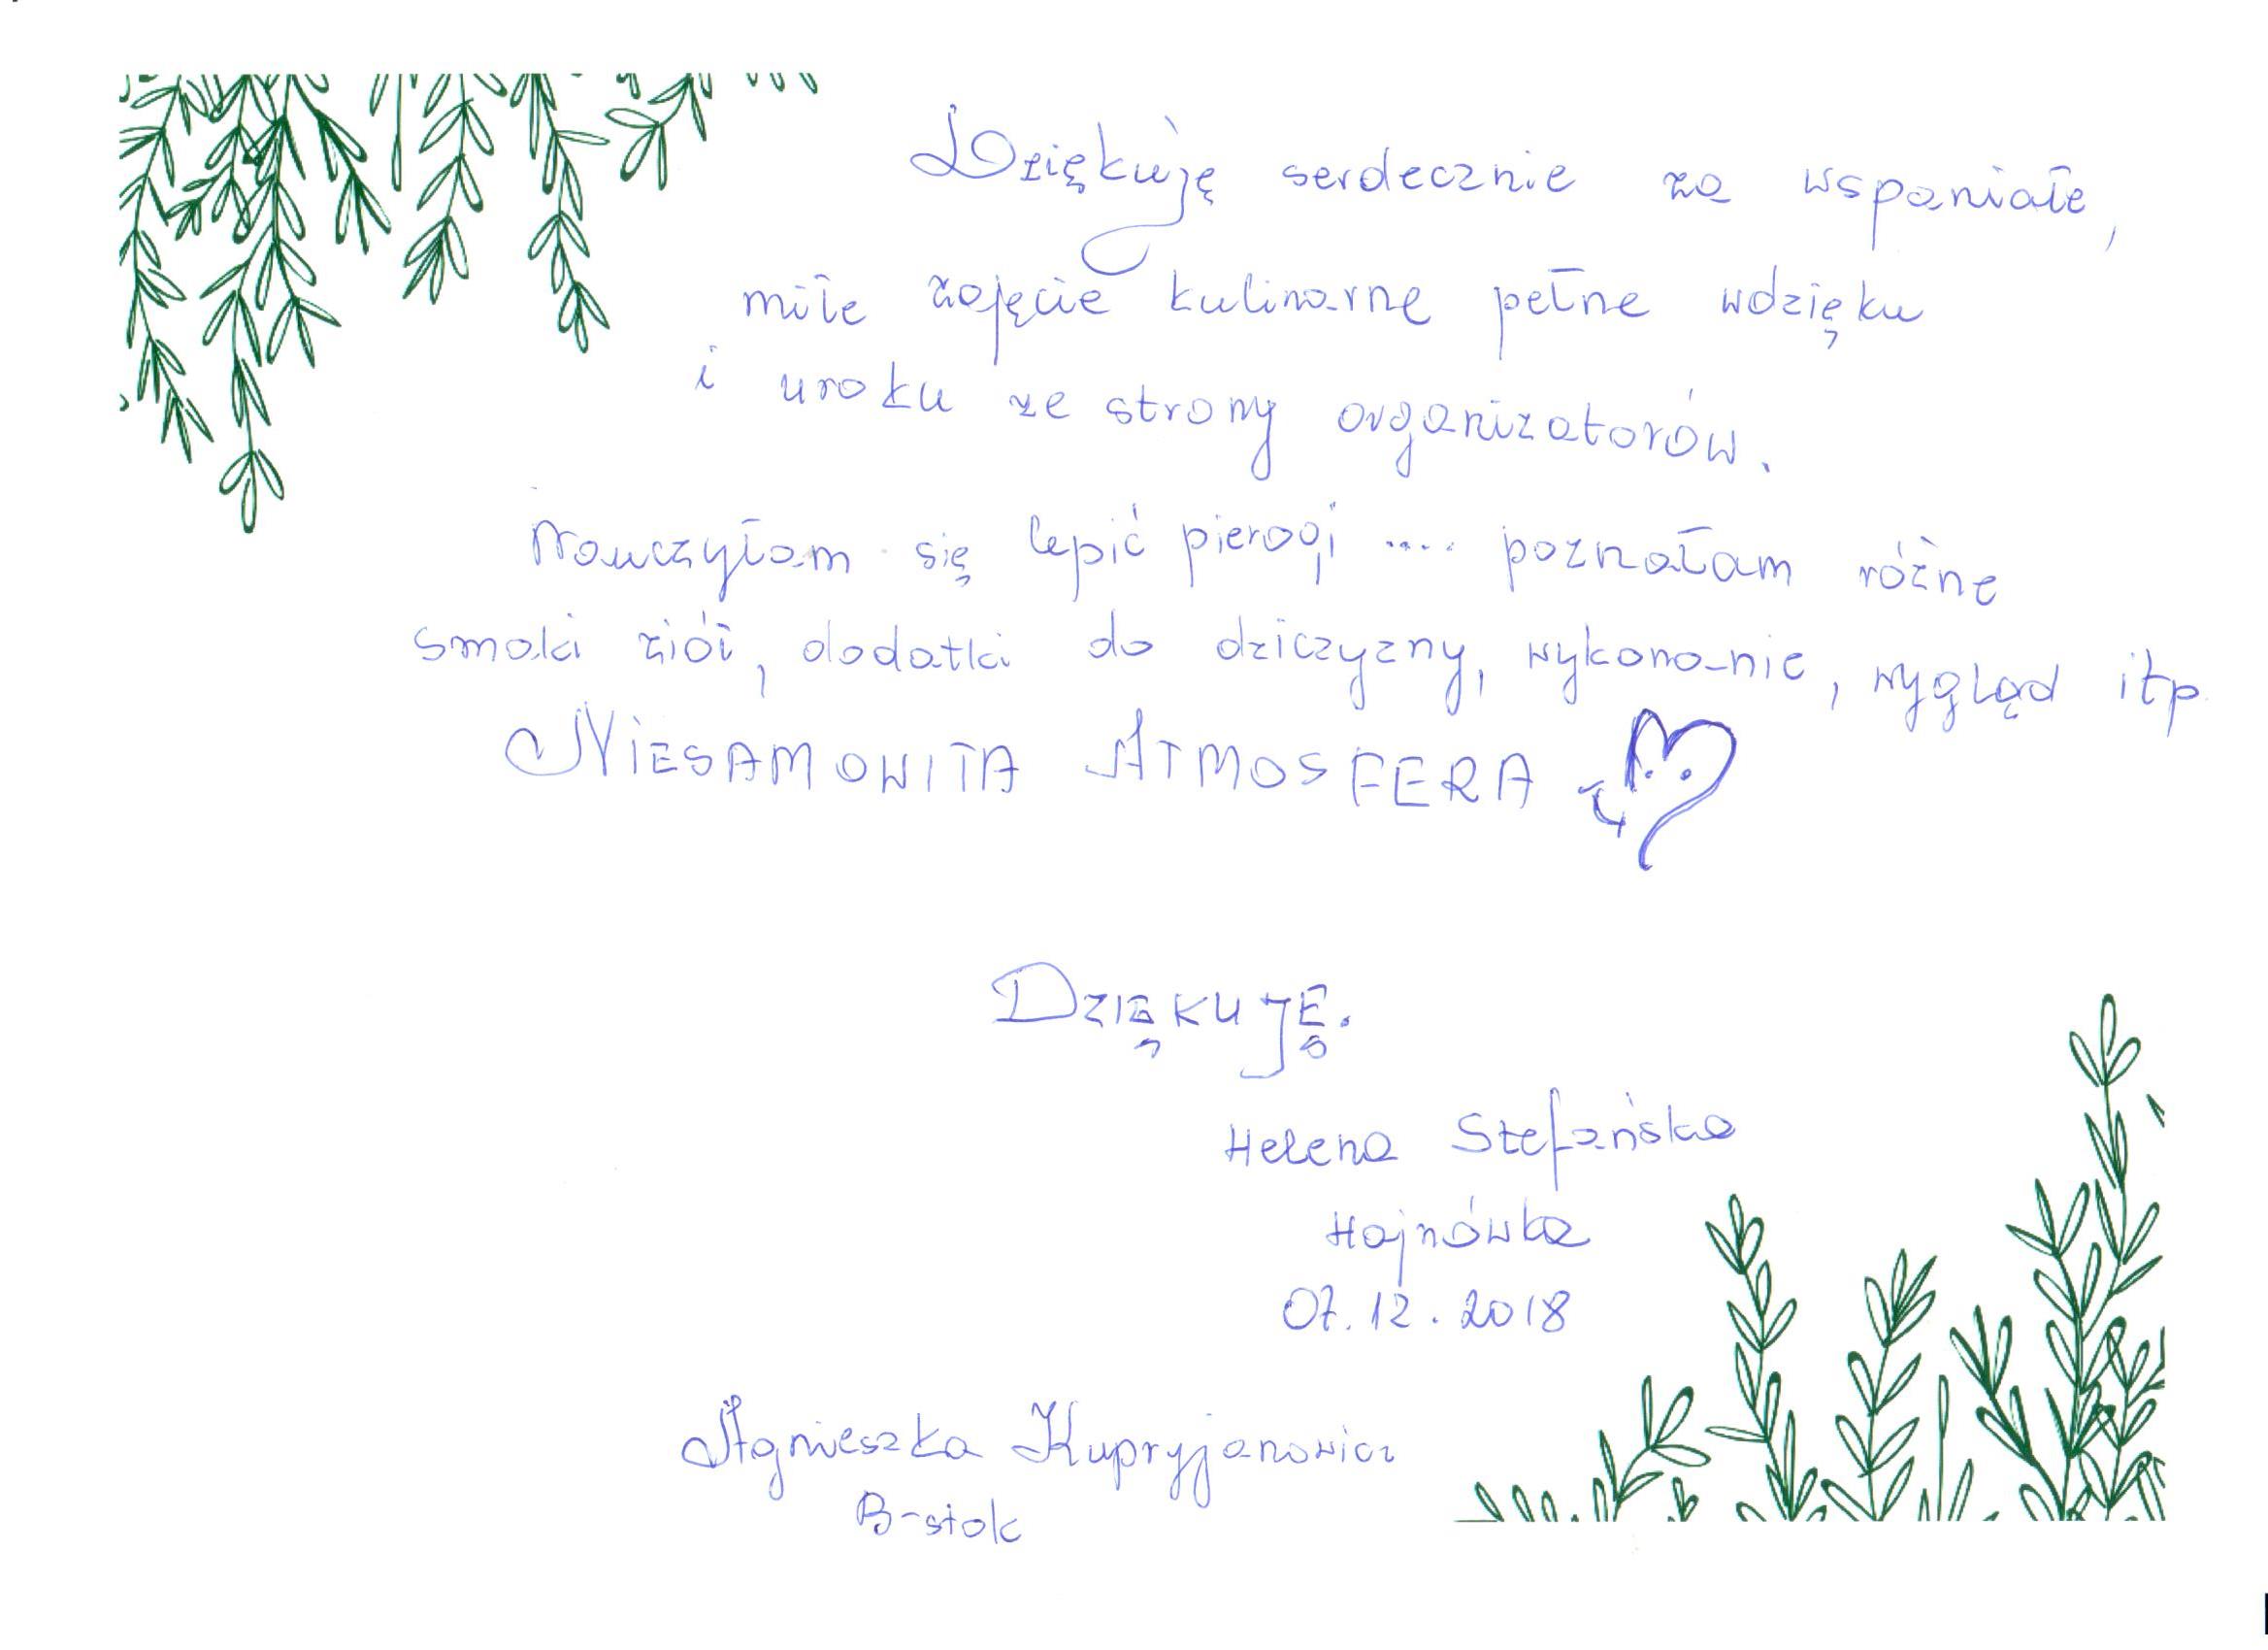 Dziękuję serdecznie za wspaniałe,
miłe zajęcie kulinarne pełne wdzięku
i uroku ze strony organizatorów.
Nauczyłam się lepić pierogi .... poznałam różne
smaki ziół, dodatki do dziczyzny, wykona-nie, wygląd itp.
NIESAMOWITA ATMOSFERA
DZIĘKUJĘ.
Helena Stefańska
Hajnówka
07.12.2018
Agnieszka Kupryjanowicz
B-stok